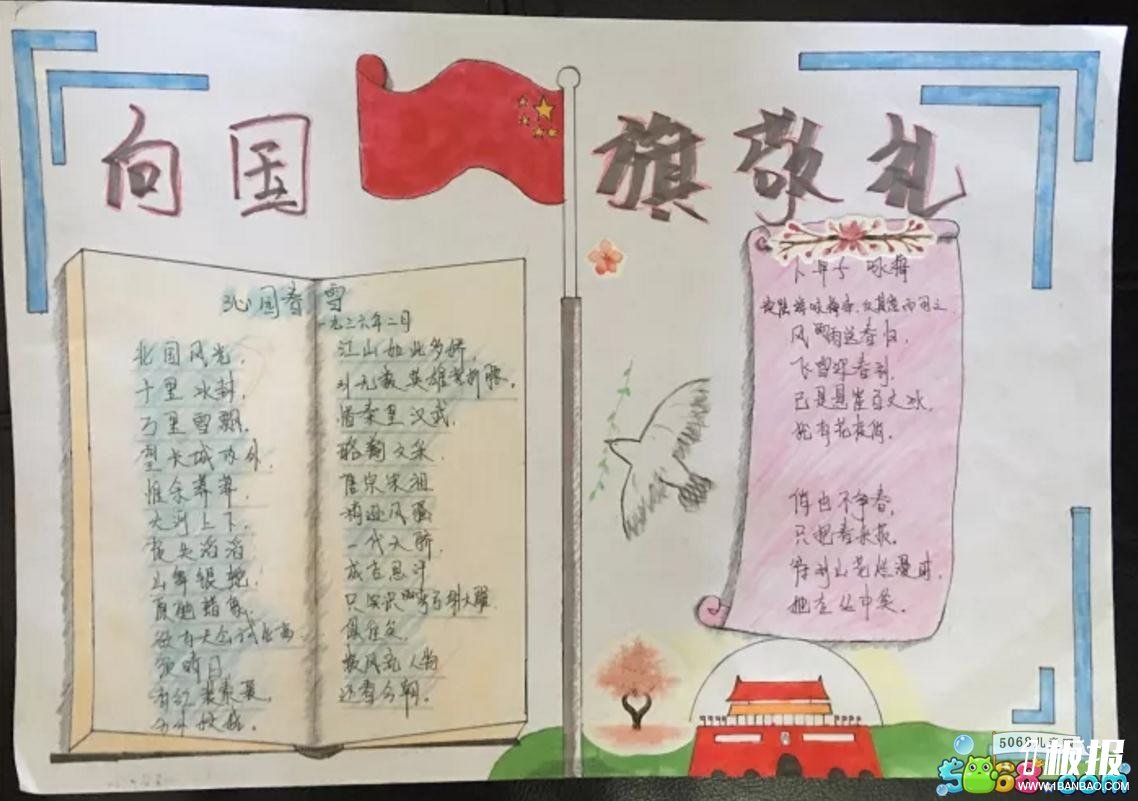 向国旗敬礼
沁园春 雪
一九三六年二月
北国风光,
十里冰封,
万里雪飘,
望长城内外,
惟余莽莽,
大河上下,
顿失滔滔
山舞银蛇,
原驰蜡象,
欲与天公试比高
须晴日
看红装素裹,
江山如此多娇,
引无数英雄竞折腰。
惜秦皇汉武,
略输文采,
唐宗宋祖
稍逊风骚
一代天骄,
成吉思汗
只识弯弓射大雕
俱往矣,
数风流人物
还看今朝。
卜算子 咏梅
风雨送春归,
飞雪迎春到,
已是悬崖百丈冰,
犹有花枝俏。
俏也不争春,
只把春来报。
待到山花烂漫时,
她在丛中笑。
5068儿童网
5068.com
板报
WWW.1BANBAO.COM